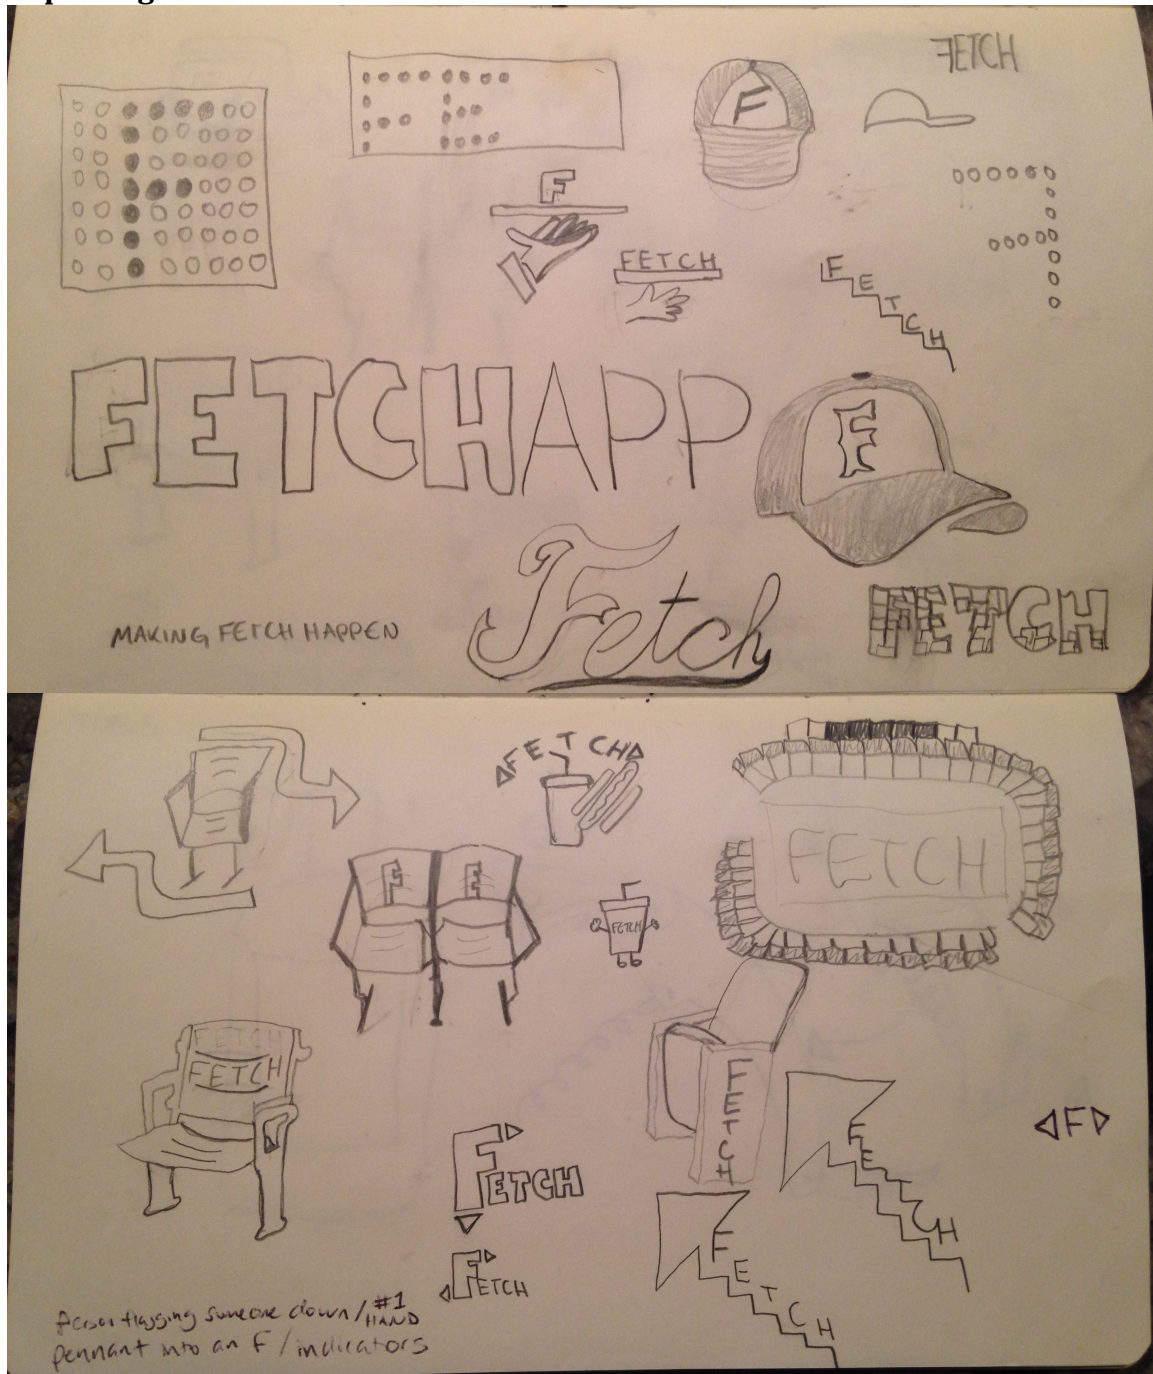 FETCH
F
F
FETCH
FETCH
FETCHAPP
F
MAKING FETCH HAPPEN
Fetch
FETCH
FETCH
FETCH
F E
FETCH
FETCH
FETCH
FETCH
FETCH
FETCH
F
FETCH
FETCH
FETCH
person flagging someone down / #1 HAND
pennant into an F / indicators